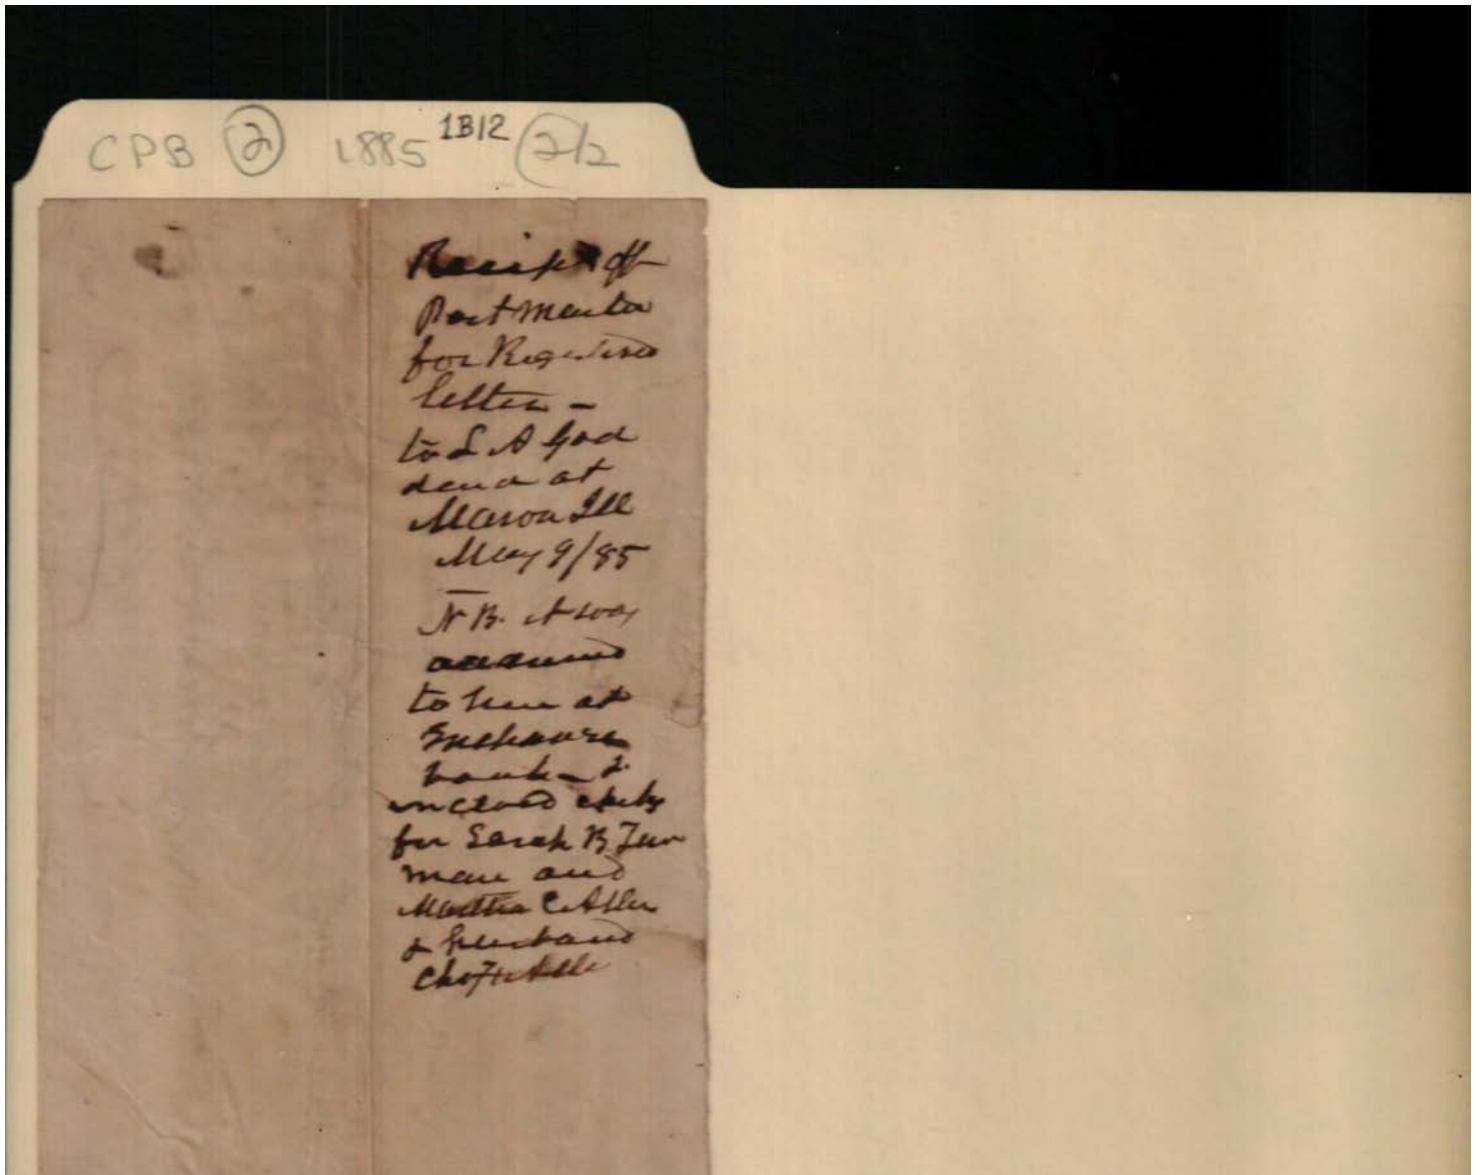 CPB (2) 1885 1B12 (2/2
Receipt of
Post Master
for Registered
letter -
to L A God
dend at
Mason Ill
May 9/85
N B. it was
to him at
Exchange
bank - &
inclosed
for Sarah B Fur
man and
Martha C Aller
& husband